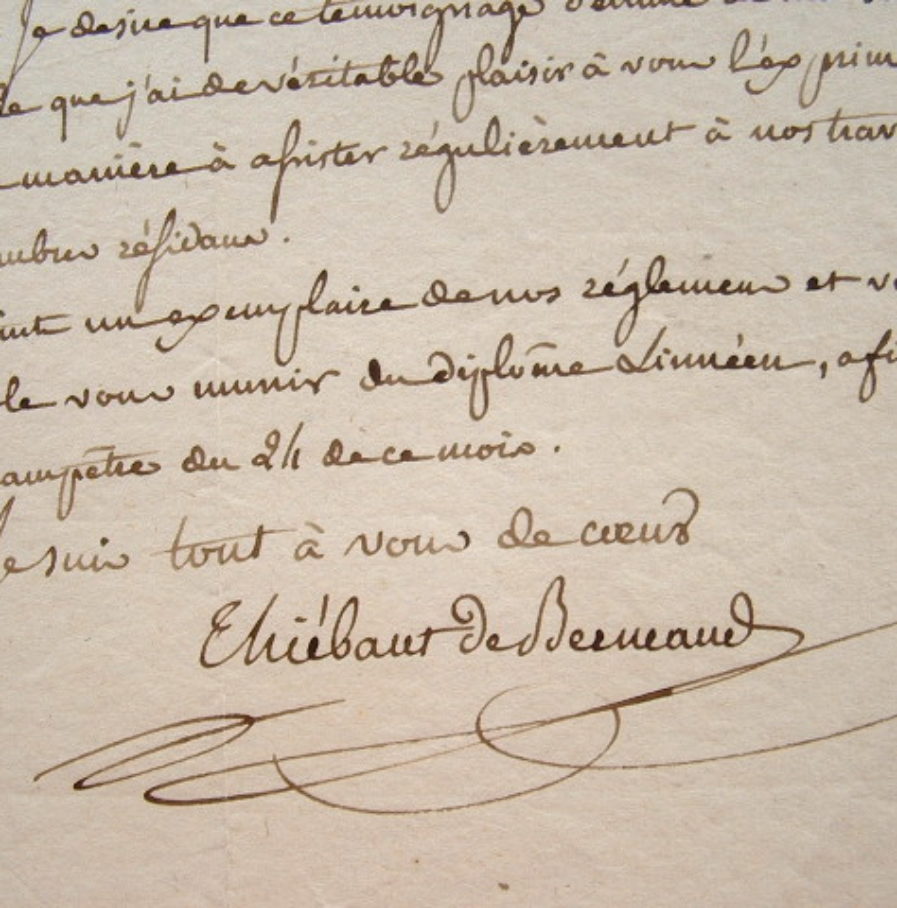 Je desire que ce temoignage d'estime
que j'ai de véritable plaisir à vous l'exprim
manière à assister régulièrement à nos trav
mbres résidans.
int un exemplaire de nos réglemens et v
le vous munir du diplôme Linnéen, afi
ampêtre du 24 de ce mois.
e suis tout à vous de cœur
Thiébaut de Berneaud